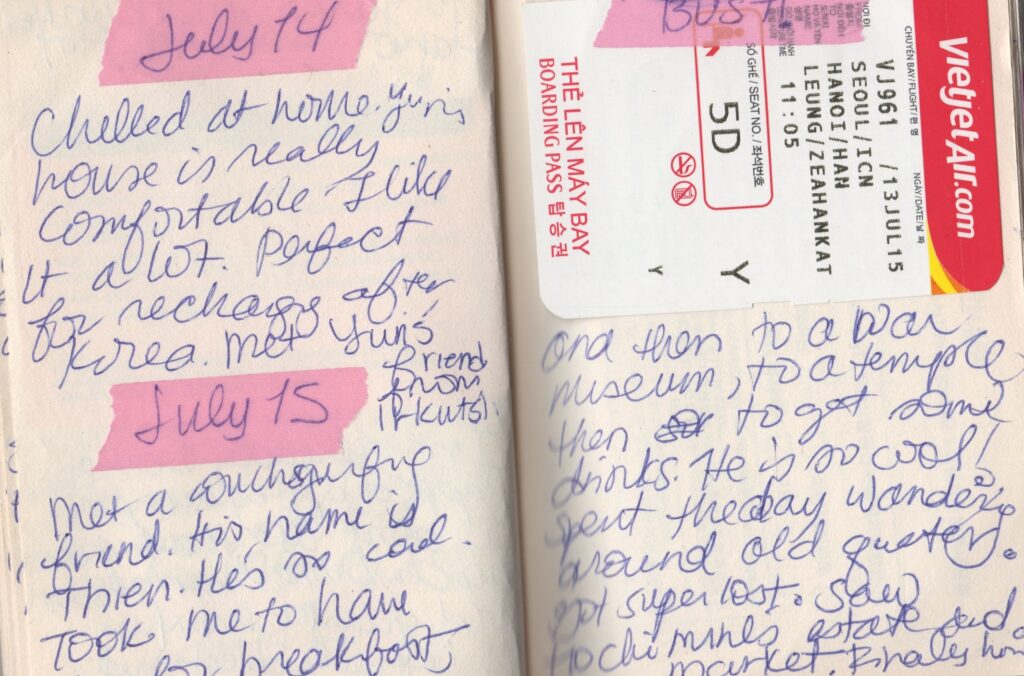 July 14
Chilled at home. Yuri's
house is really
comfortable I like
it a lot. Perfect
for recharg after
Korea. Met Yuri's
friend
from
Irkutsk.
July 15
Met a couchsurfing
friend. His name is
Thien. He's so cool.
Took me to have
for breakfast,
BUST
THẺ LÊN MÁY BAY
BOARDING PASS 탑승권
SỐ GHẾ / SEAT NO. / 좌석번호
5D
Y
Y
VJ961 /13JUL15
SEOUL/ICN
HANOI/HAN
LEUNG/ZEAHANKAT
11:05
CHUYẾN BAY/FLIGHT/편 명
NGÀY/DATE/날 짜
Vietjet Air.com
and then to a war
museum, to a temple
then to get some
drinks. He is so cool!
spent the day wandering
around old quater.
got super lost. Saw
Ho chi minhs estate and
market. Finaley